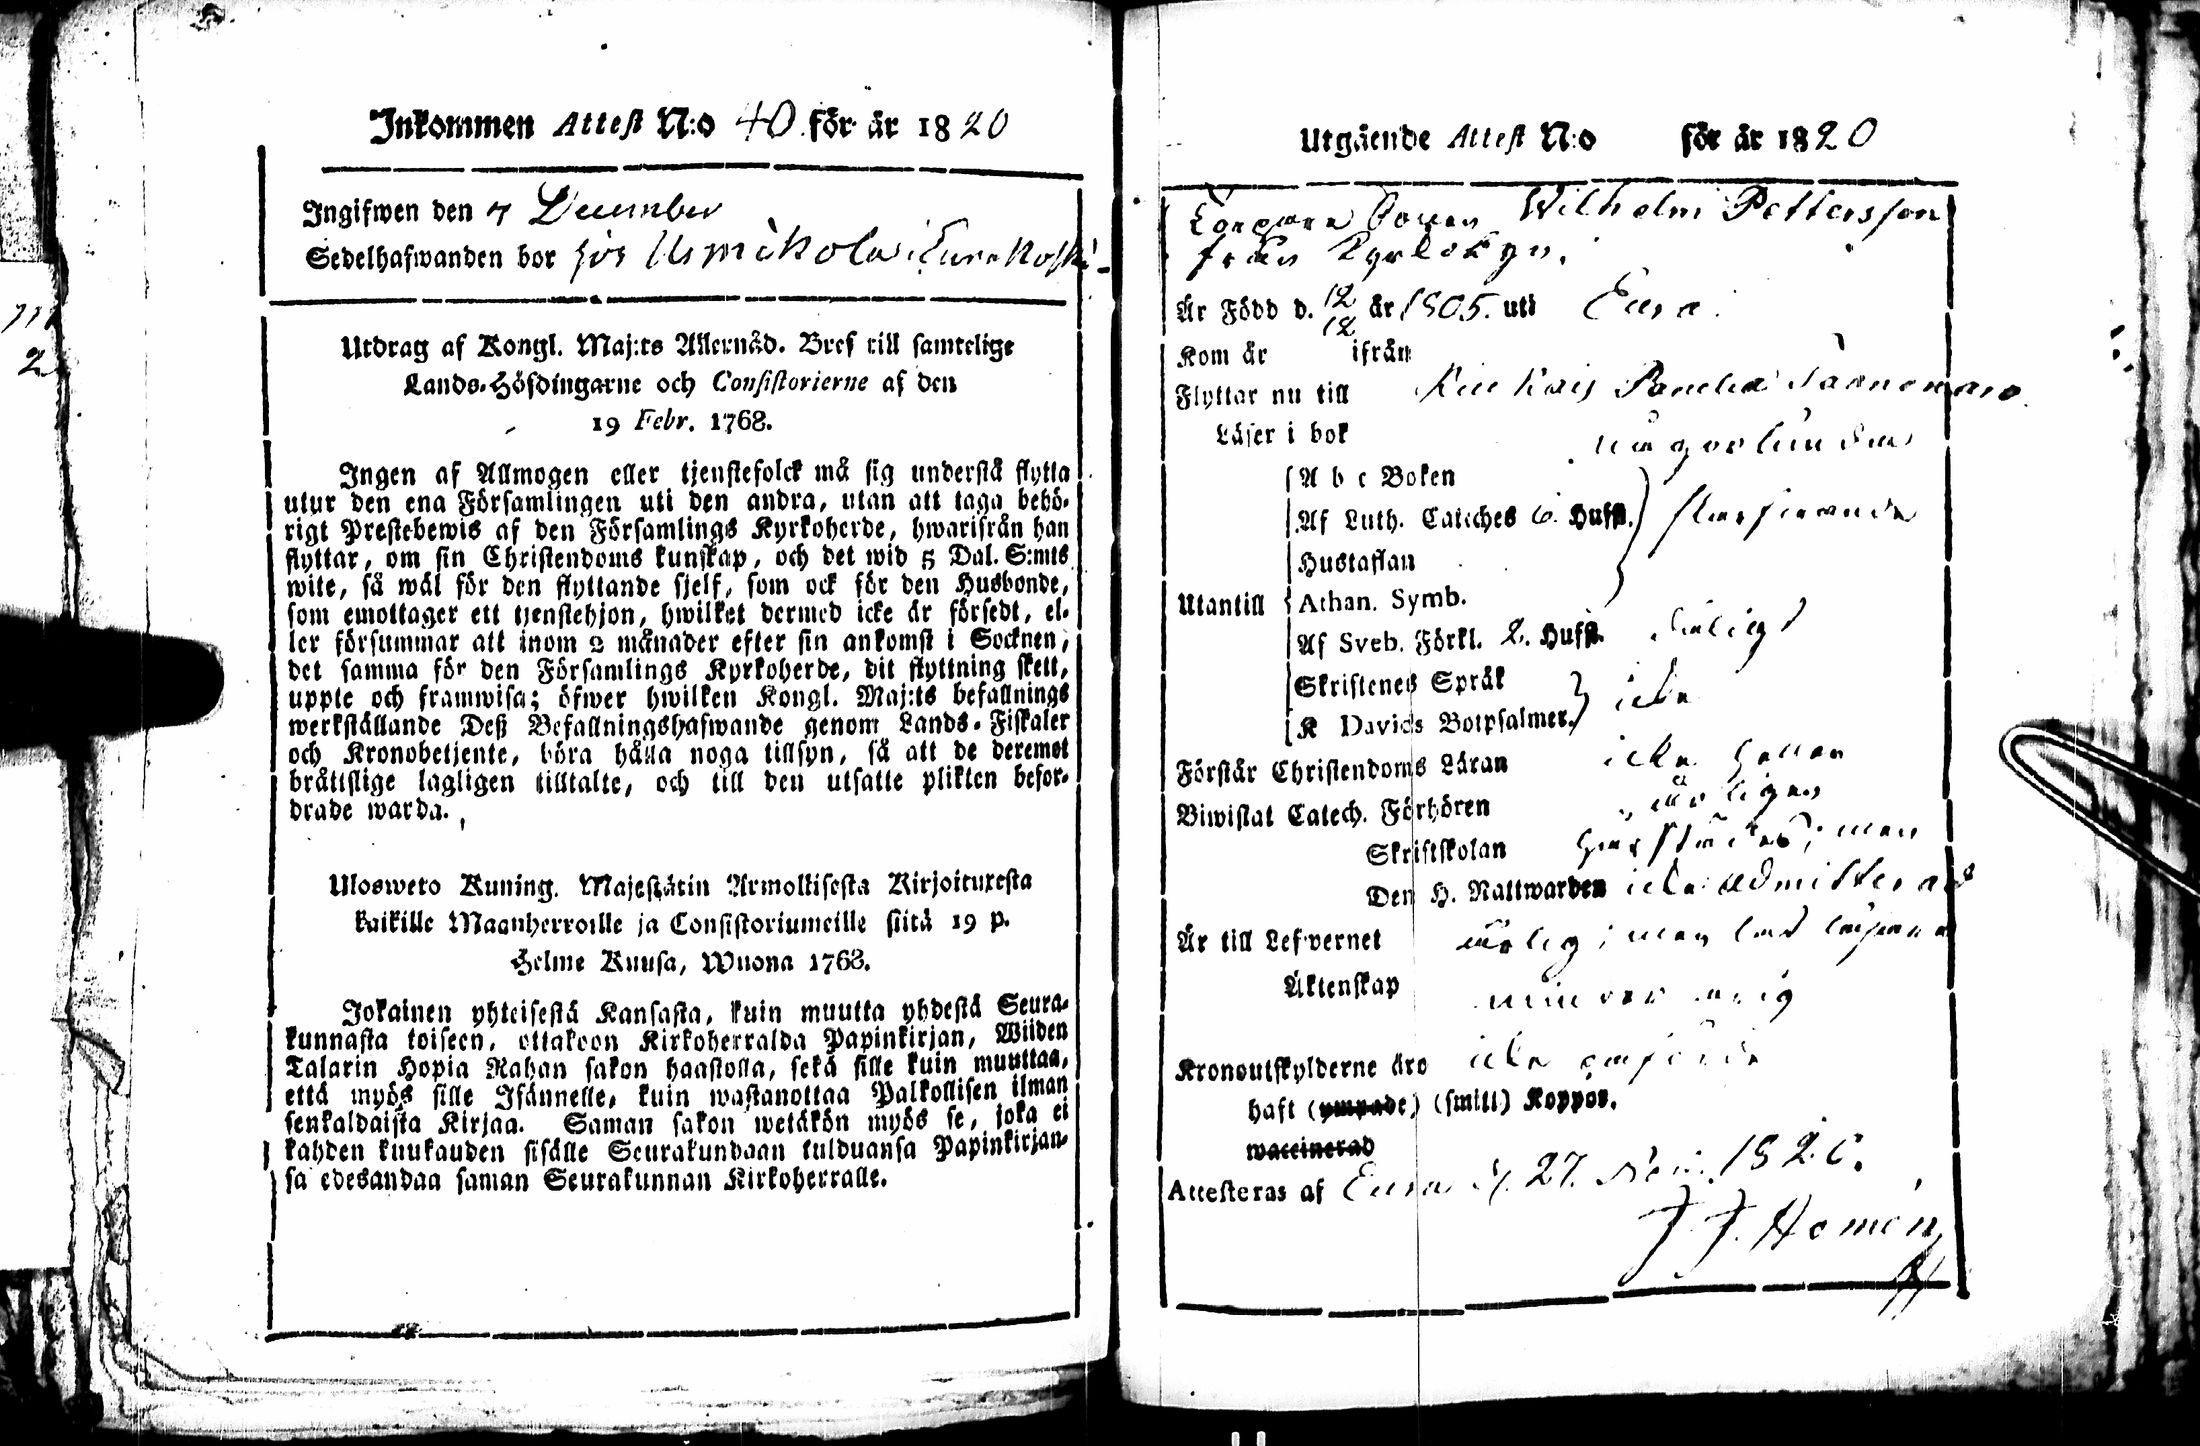 711
2
Inkommen Attest N:o 40 för år 1820
Ingifwen den 7 December
Sedelhafwanden bor hos Usmikola i Eurakoski
Utdrag af Kongl. Maj:ts Allernåd. Bref till samtelige
Lands-Höfdingarne och Consistorierne af den
19 Febr. 1768.
Ingen af Allmogen eller tjenstefolck må sig understå flytta
utur den ena Församlingen uti den andra, utan att taga behö-
rigt Prestebewis af den Församlings Kyrkoherde, hwarifrån han
flyttar, om sin Christendoms kunskap, och det wid 5 Dal. S:mts
wite, så wäl för den flyttande sjelf, som ock för den Husbonde,
som emottager ett tjenstehjon, hwilket dermed icke är försedt, el-
ler försummar att inom 2 månader efter sin ankomst i Socknen,
det samma för den Församlings Kyrkoherde, dit flyttning skett,
uppte och framwisa; öfwer hwilken Kongl. Maj:ts befallnings
werkställande Deß Befallningshafwande genom Lands-Fiskaler
och Kronobetjente, böra hålla noga tillsyn, så att de deremot
bråttslige lagligen tilltalte, och till den utsatte plikten befor-
drade warda.
Ulosweto Kuning. Majestätin Armollisesta Kirjoituxesta
kaikille Maanherroille ja Consistoriumeille siitä 19 p.
Helme Kuusa, Wuona 1768.
Jokainen yhteisestä Kansasta, kuin muutta yhdestä Seura-
kunnasta toiseen, ottakoon Kirkoherralda Papinkirjan, Wiiden
Talarin Hopia Rahan sakon haastolla, sekä sille kuin muuttaa,
että myös sille Isännelle, kuin wastanottaa Palkollisen ilman
senkaldaista Kirjaa. Saman sakon wetäkön myös se, joka ei
kahden kuukauden sisälle Seurakundaan tulduansa Papinkirjan-
sa edesandaa saman Seurakunnan Kirkoherralle.
Utgående Attest N:o för år 1820
Wilhelm Pettersson
från Kyrkobyn.
Är Född d. 12/12 år 1805. uti Eura
Kom år ifrån
Flyttar nu till Kiukais
Läser i bok någorlunda
A b c Boken
Af Luth. Catches 6. Hufst.
Hustaflan
Utantill Athan. Symb.
Af Sveb. Förkl. 2. Hufst.
Skriftenes Språk
K Davids Botpsalmer. icke
Förstår Christendoms Läran icke heller
Biwistat Catech. Förhören årligen
Skriftskolan härstädes; men
Den H. Nattwarden icke admitterad
Är till Lefwernet ärlig; men
Äktenskap minderårig
Kronoutskylderne äro icke
haft (ympade) (smitt) Koppor.
waccinerad
Attesteras af Eura d. 27. Nov. 1820.
J. J. Homén